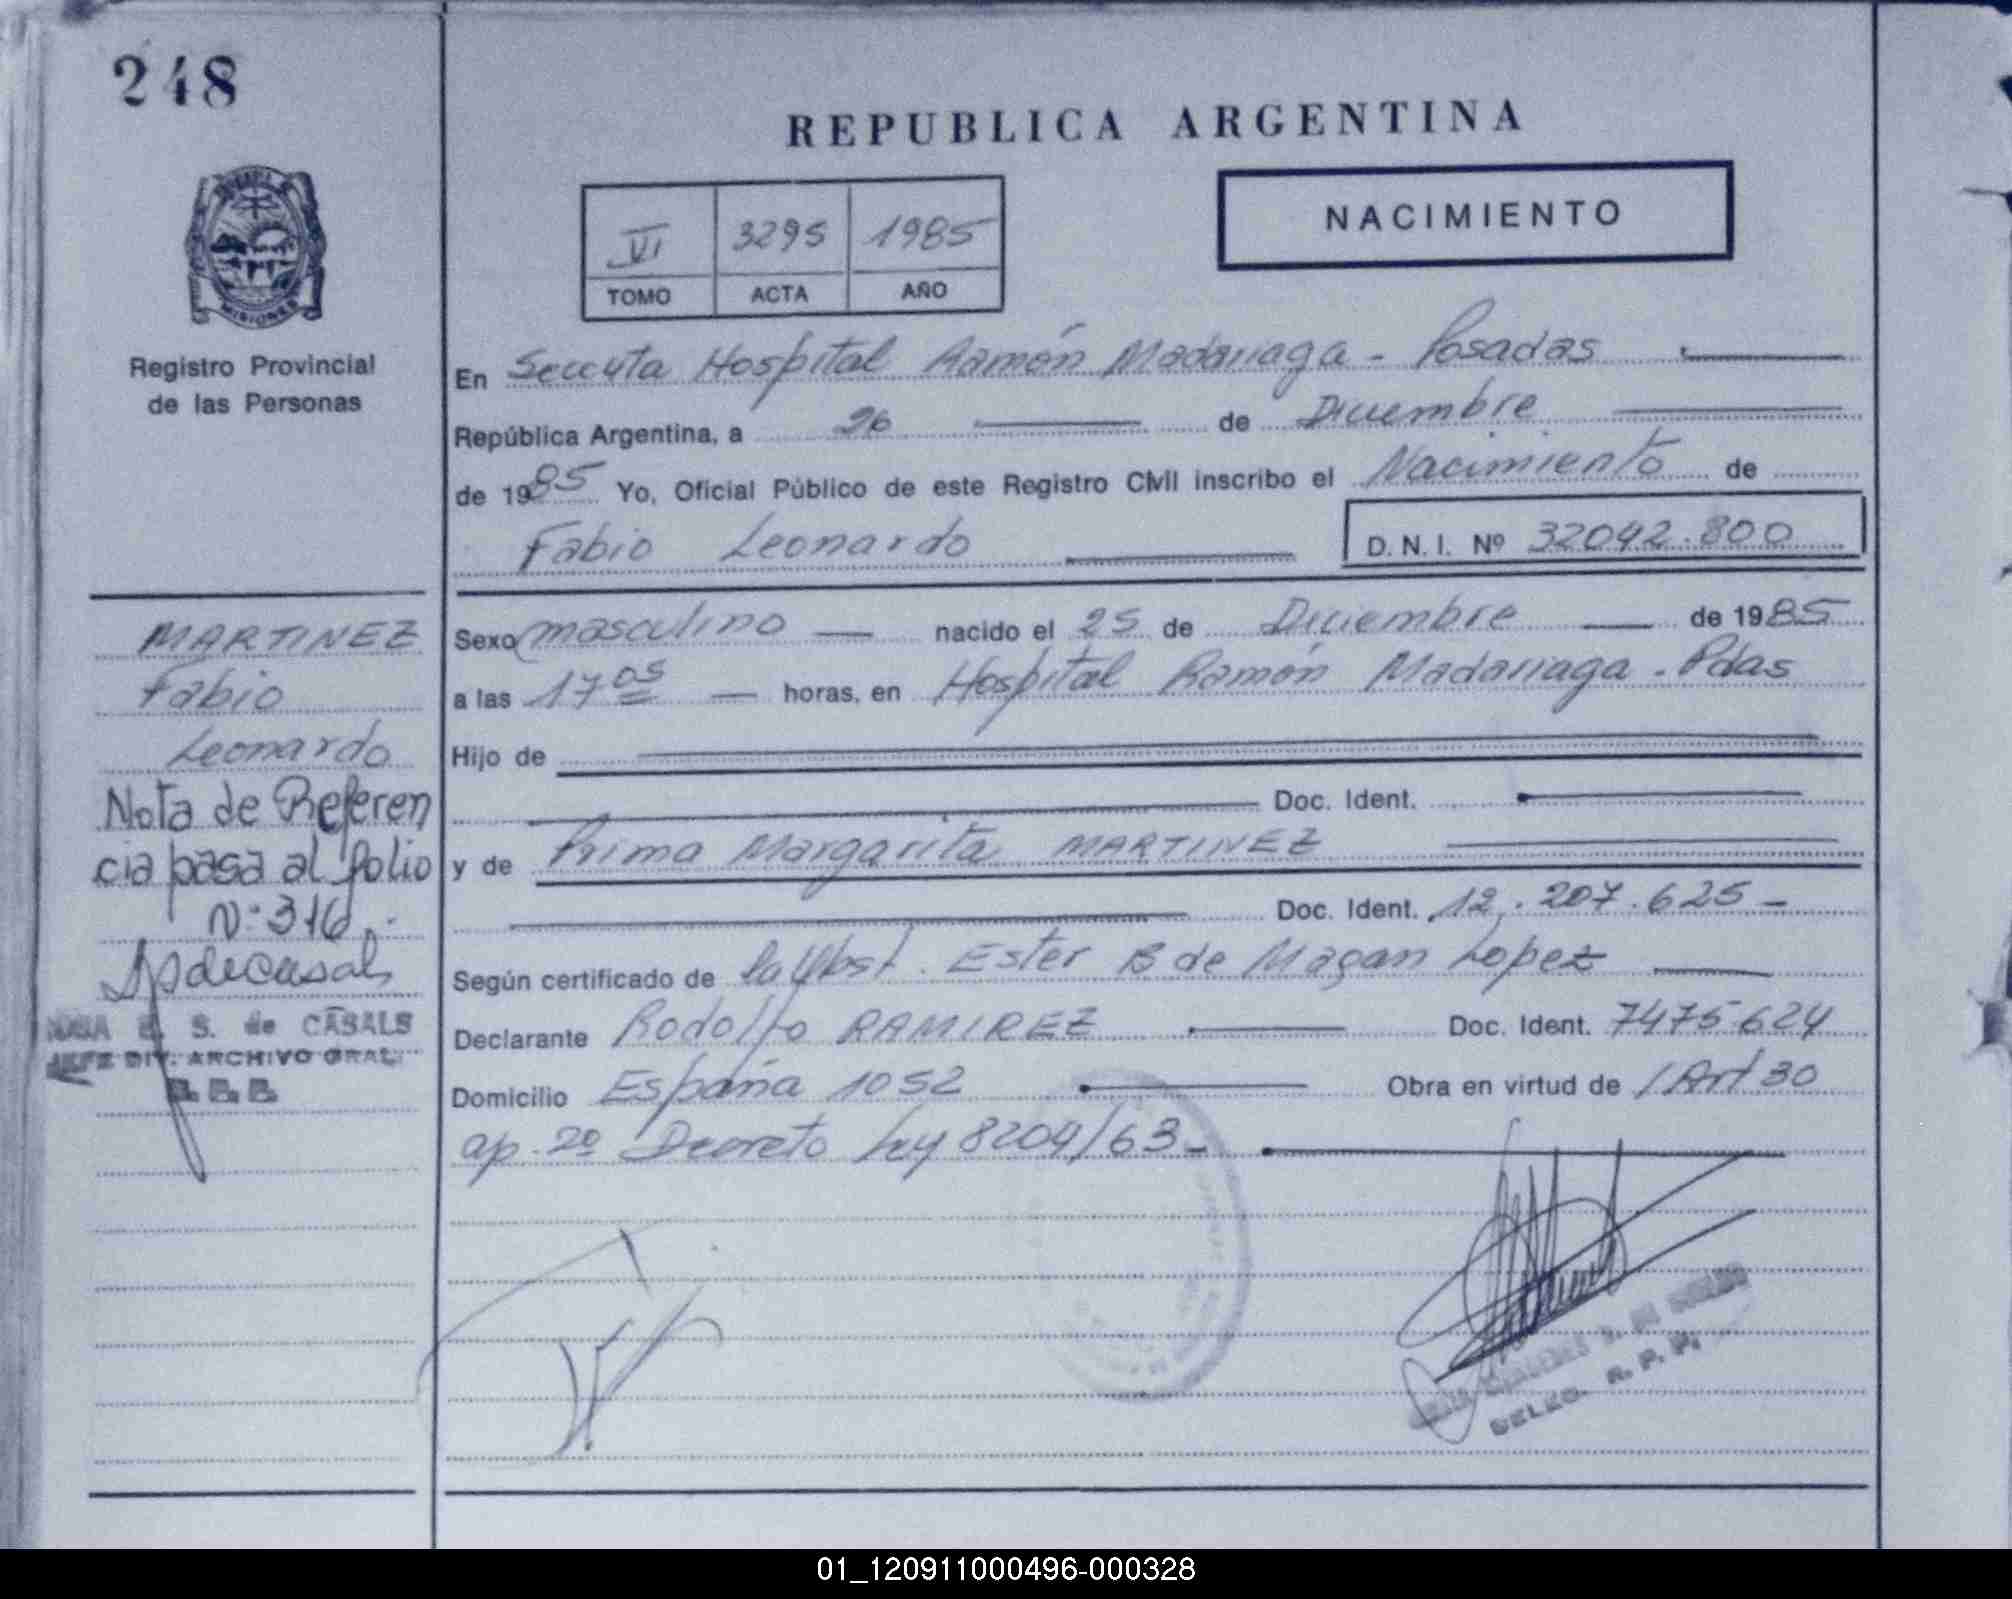 248
REPUBLICA ARGENTINA
NACIMIENTO
VI 3295 1985
TOMO ACTA AÑO
MISIONES
Registro Provincial
de las Personas
En Seccuta Hospital Ramón Madariaga - Posadas
República Argentina, a 26 de Diciembre
de 1985 Yo, Oficial Público de este Registro Civil inscribo el Nacimiento de
Fabio Leonardo
D. N. I. Nº 32042.800
MARTINEZ
Fabio
Leonardo
Nota de Referen
cia pasa al folio
Nº 316.
S. de CASALS
JEFE DIV. ARCHIVO GRAL.
Sexo masculino nacido el 25 de Diciembre de 1985
a las 17 05 horas, en Hospital Ramón Madariaga - Pdas
Hijo de
Doc. Ident.
y de Prima Margarita MARTINEZ
Doc. Ident. 12.207.625 -
Según certificado de la Obst. Ester B de Magan Lopez
Declarante Rodolfo RAMIREZ Doc. Ident. 7475624
Domicilio España 1052 Obra en virtud de / Art 30
ap. 2º Decreto Ley 8204/63 -
DELEG. R. P. P.
01_120911000496-000328